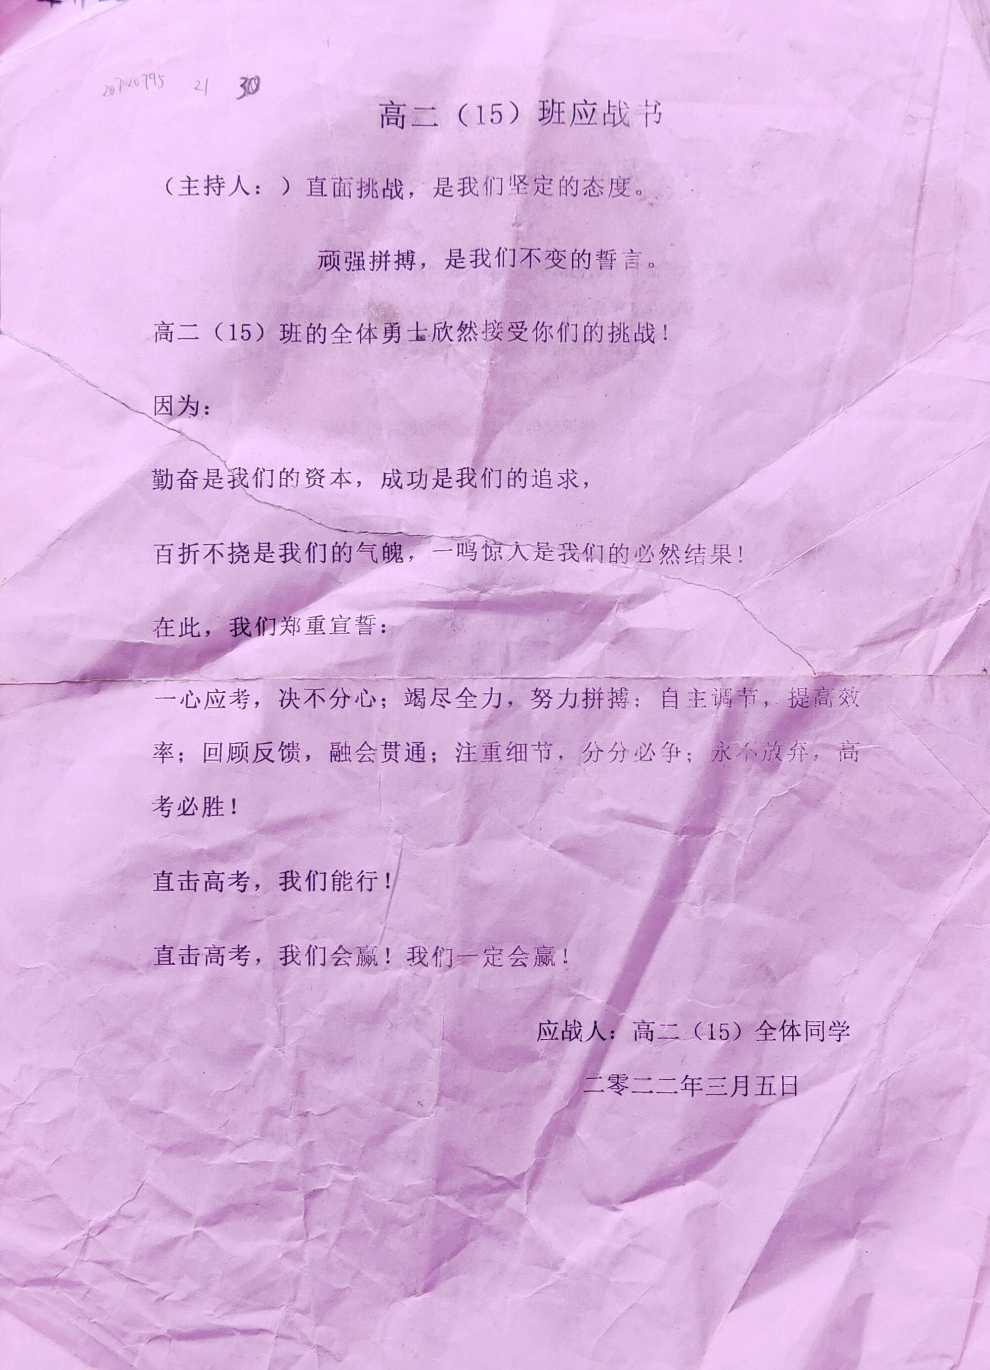 21 30
高二（15）班应战书
（主持人：）直面挑战，是我们坚定的态度。
顽强拼搏，是我们不变的誓言。
高二（15）班的全体勇士欣然接受你们的挑战！
因为：
勤奋是我们的资本，成功是我们的追求，
百折不挠是我们的气魄，一鸣惊人是我们的必然结果！
在此，我们郑重宣誓：
一心应考，决不分心；竭尽全力，努力拼搏；自主调节，提高效
率；回顾反馈，融会贯通；注重细节，分分必争；永不放弃，高
考必胜！
直击高考，我们能行！
直击高考，我们会赢！我们一定会赢！
应战人：高二（15）全体同学
二零二二年三月五日